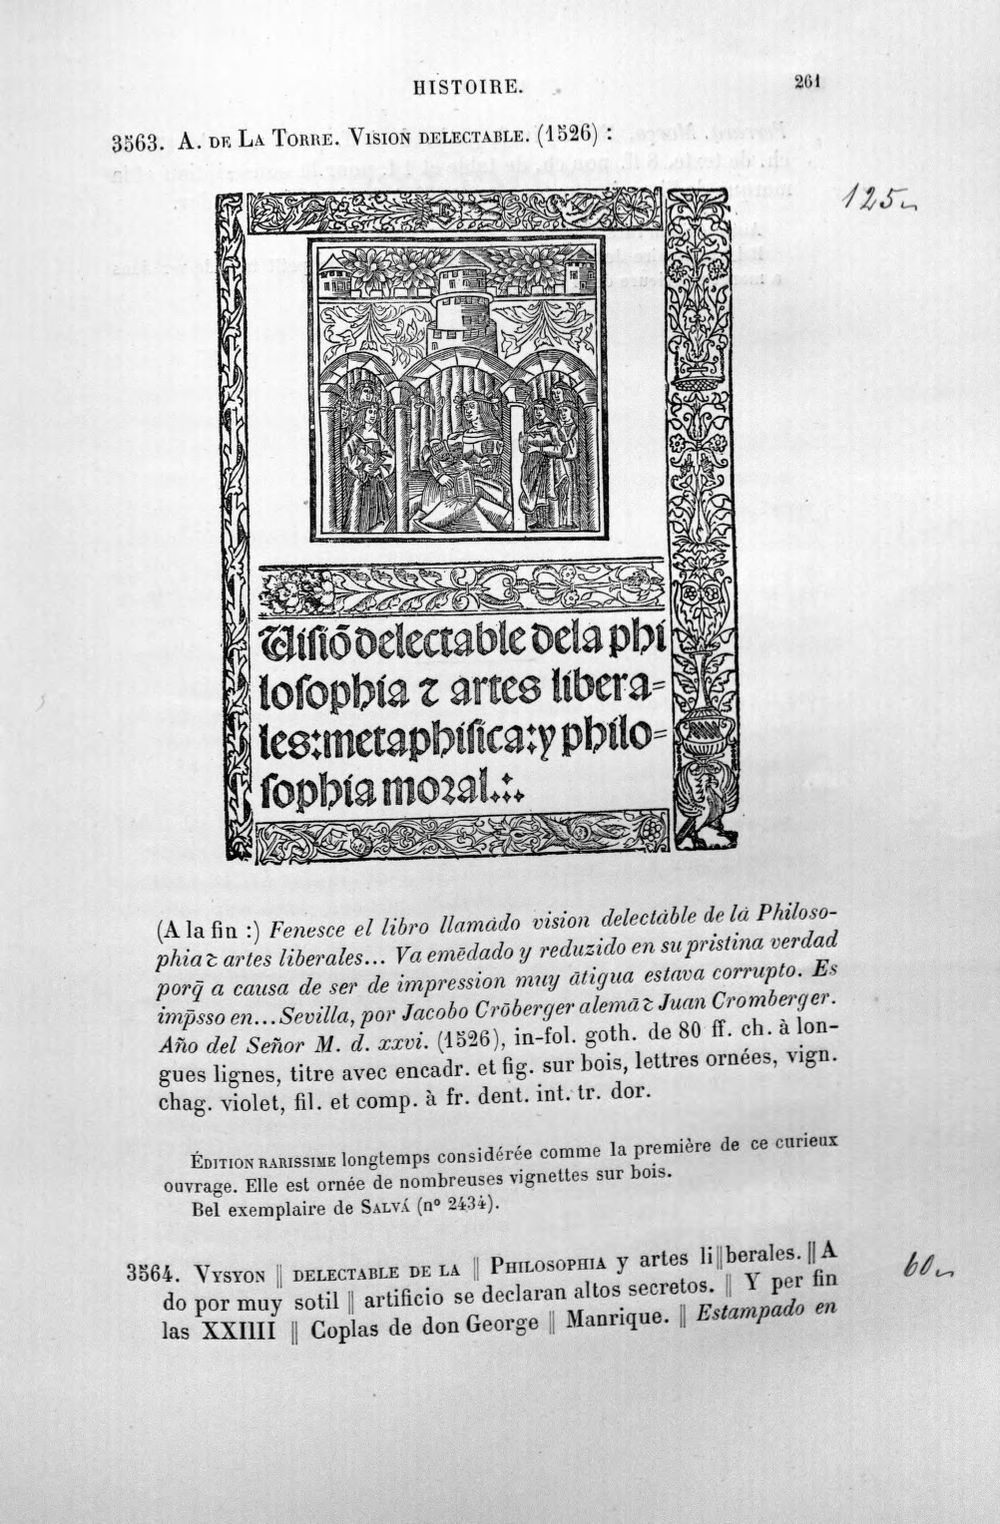 HISTOIRE.
261
3563. A. DE LA TORRE. VISION DELECTABLE. (1526) :
125
Uisiō delectable dela phi
losophia ⁊ artes libera=
les:metaphisica:y philo=
sophia moral.
(A la fin :) Fenesce el libro llamàdo vision delectàble de là Philoso-
phia ⁊ artes liberales... Va emēdado y reduzido en su pristina verdad
porq̄ a causa de ser de impression muy ātigua estava corrupto. Es
imp̄sso en...Sevilla, por Jacobo Crōberger alemā ⁊ Juan Cromberger.
Año del Señor M. d. xxvi. (1526), in-fol. goth. de 80 ff. ch. à lon-
gues lignes, titre avec encadr. et fig. sur bois, lettres ornées, vign.
chag. violet, fil. et comp. à fr. dent. int. tr. dor.
ÉDITION RARISSIME longtemps considérée comme la première de ce curieux
ouvrage. Elle est ornée de nombreuses vignettes sur bois.
Bel exemplaire de SALVÁ (nº 2434).
3564. VYSYON || DELECTABLE DE LA || PHILOSOPHIA y artes li||berales. || A
do por muy sotil || artificio se declaran altos secretos. || Y per fin
las XXIIII || Coplas de don George || Manrique. || Estampado en
60